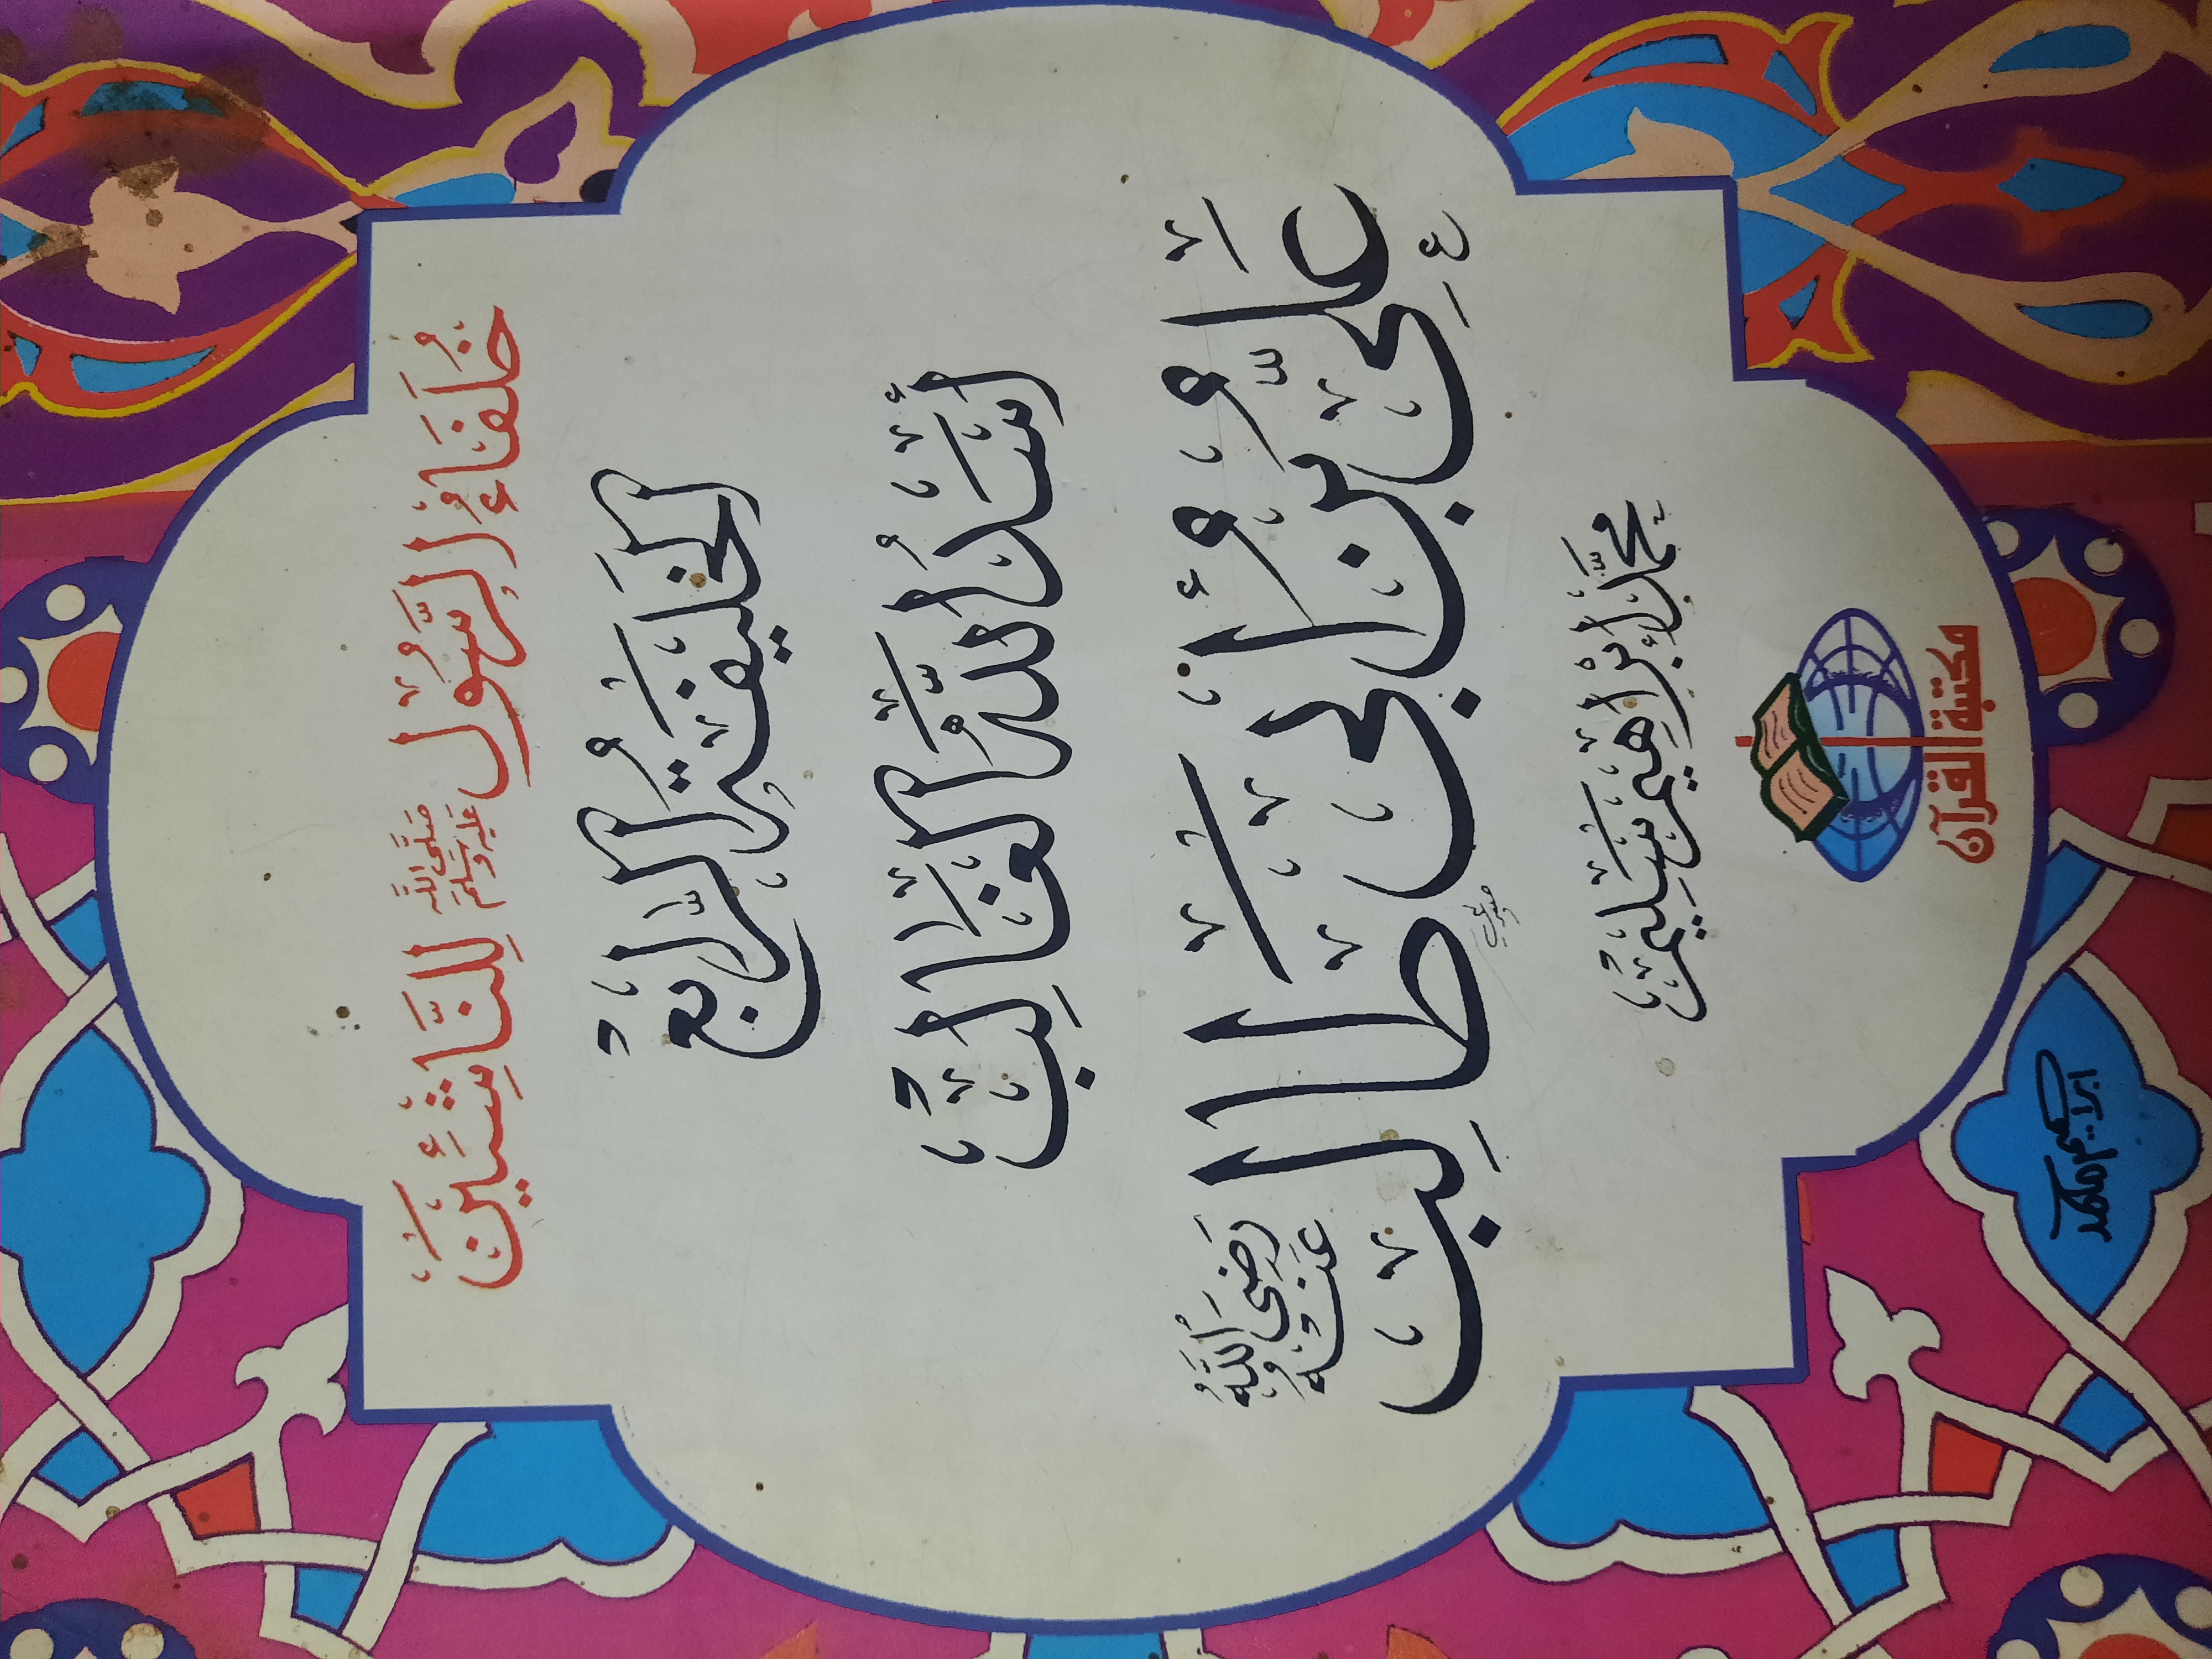 خُلَفَاءُ الرَّسُوْلِ صَلَّى اللَّه عَلَيْهِ وَسَلَّمَ لِلنَّاشِئِيْنَ
الخَلِيفَةُ الرَّابعُ
أَسَدُ اللَّهِ الغَالِبُ
عَلِيُّ بْنُ أَبِي طَالِبٍ رَضِيَ اللَّهُ عَنْهُ
مُحَمَّد إِبْرَاهِيْم سَلِيْمٌ
مكتبة القرآن
ابراهيم محمد